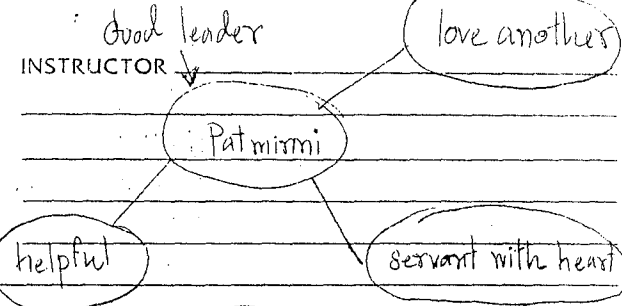 Good leader
love another
INSTRUCTOR
Patmirmi
helpful
servant with heart